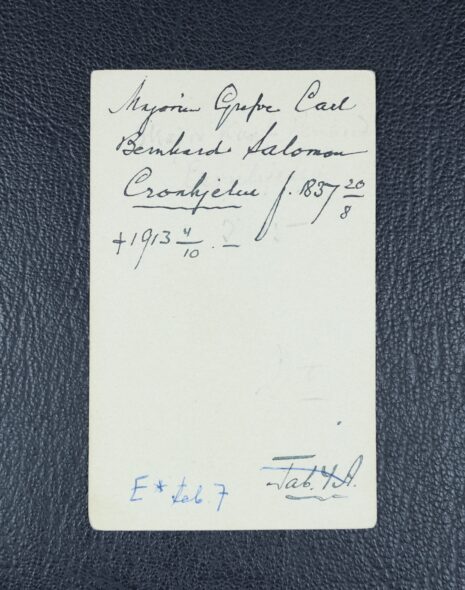 Majoren Grefve Carl
Bernhard Salomon
Cronhjelm f. 1837 20/8
+ 1913 4/10. –
Tab. 7 A.
E* tab. 7